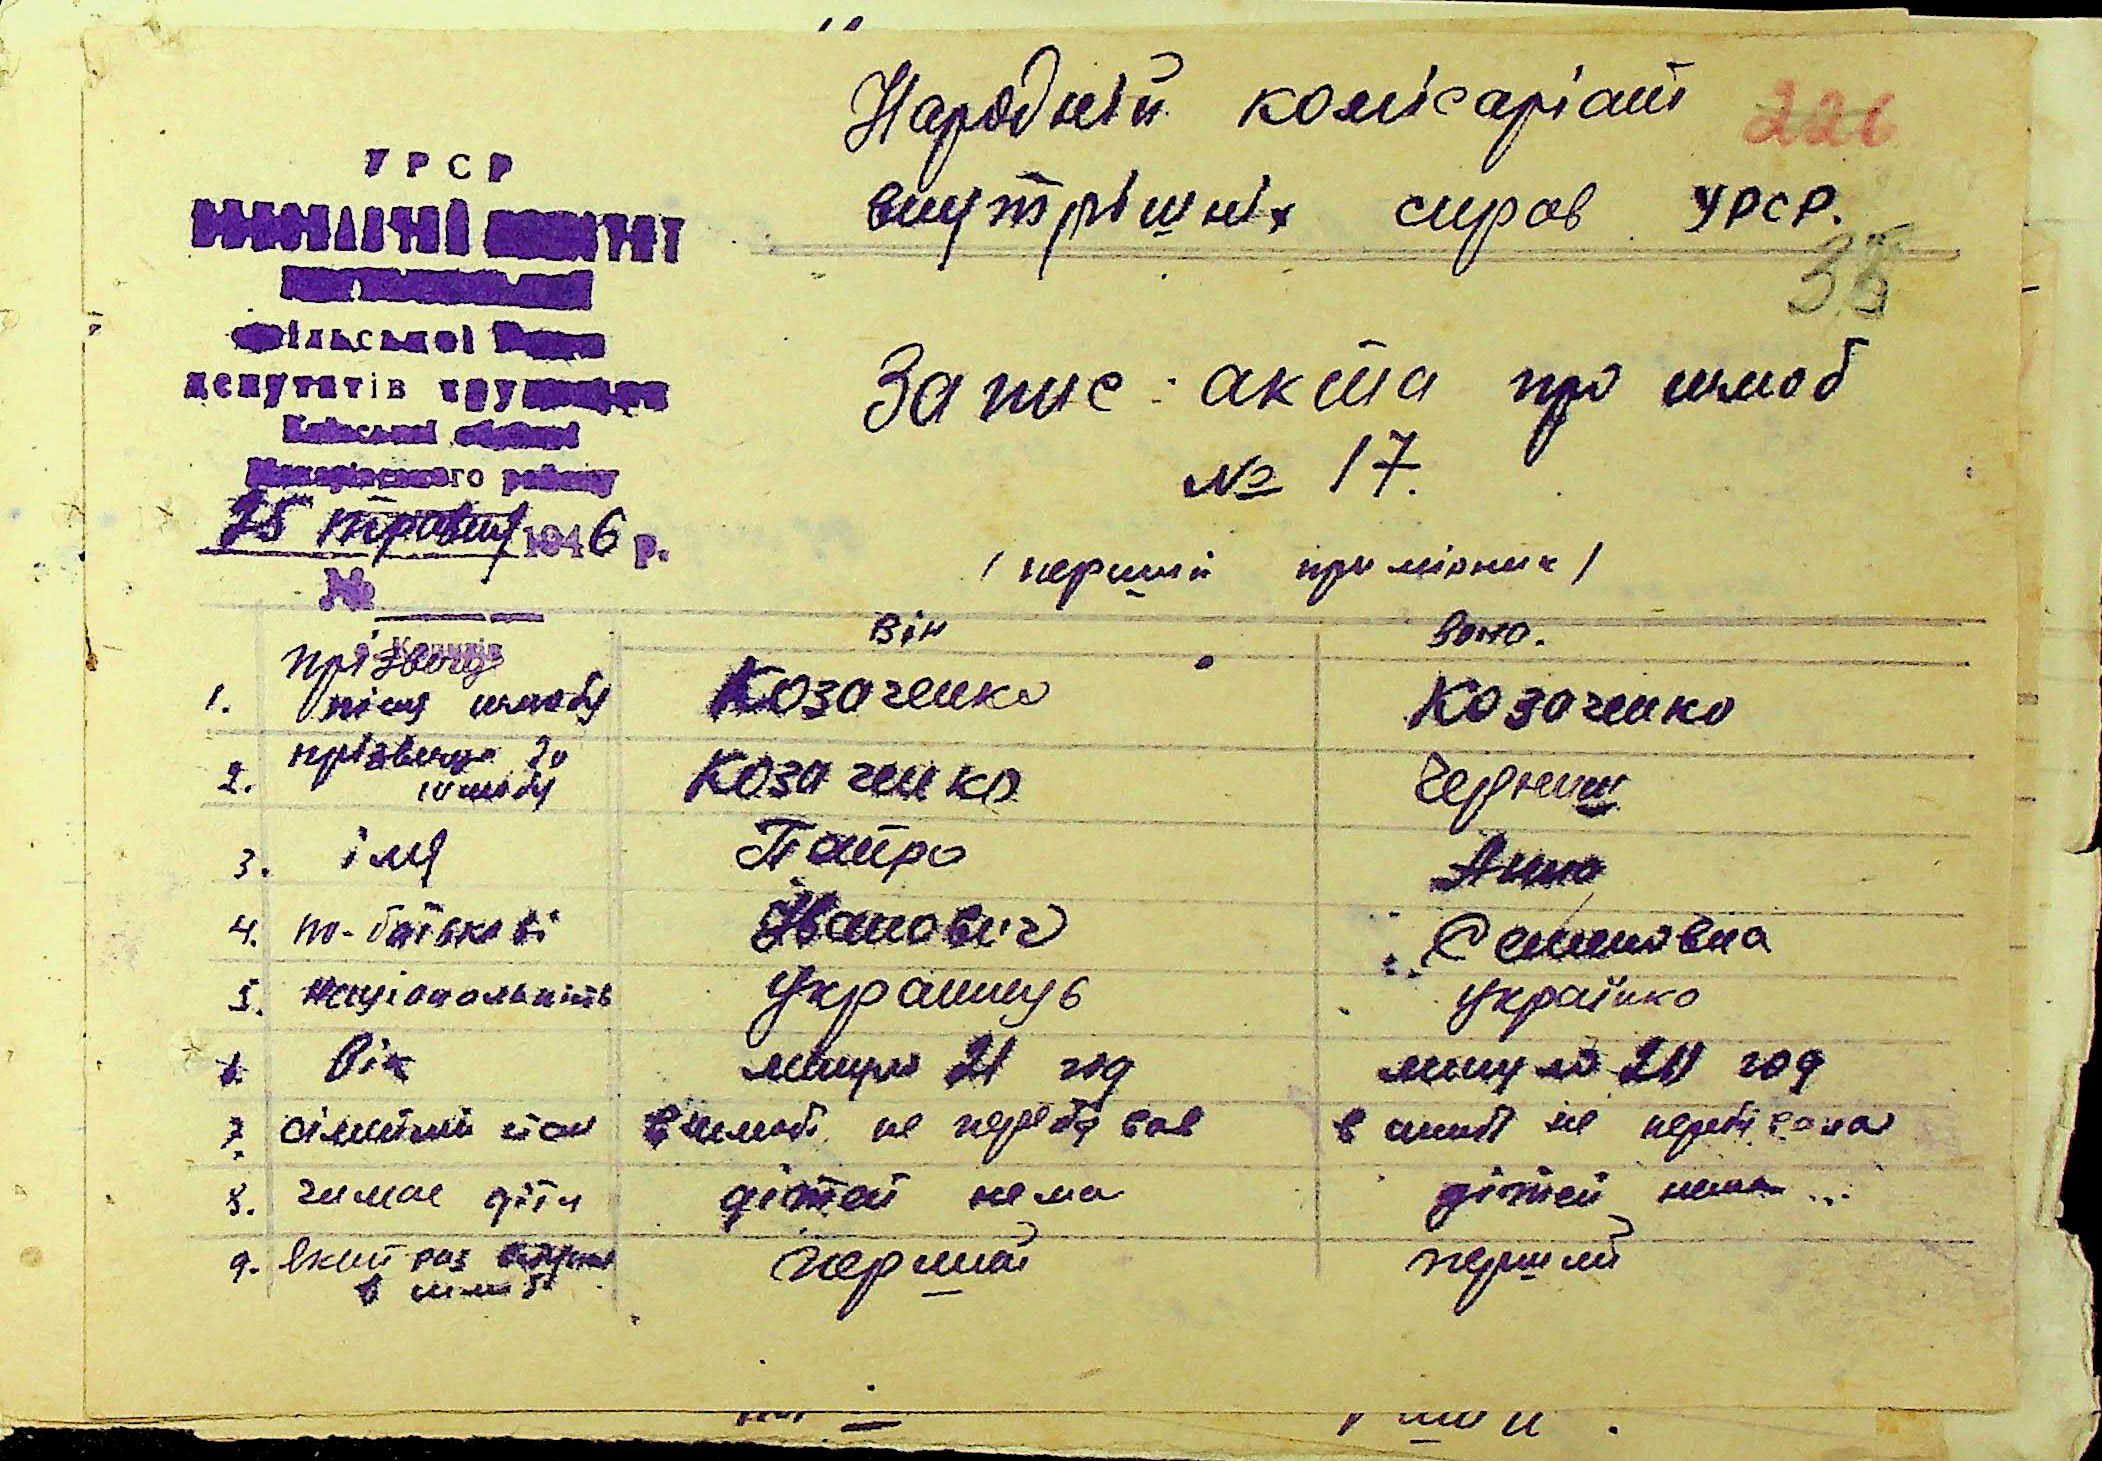 Народній комісаріат
226
внутрішніх справ УРСР.
38
УРСР
сільської
депутатів
Київської області
Макарівського району
25 травня 1946 р.
№
Запис акта про шлюб
№ 17.
/ перший примірник /
Він
Вона.
1. прізвище після шлюбу
Козаченко
Козаченко
2. прізвище до шлюбу
Козаченко
Черниш
3. імя
Патро
Анна
4. по-батькові
Иванович
Семеновна
5. національність
Українець
Українка
6. вік
минуло 21 год
минуло 20 год
7. сімейний стан
в шлюбі не перебував
в шлюбі не перебувала
8. чи має діти
дітей нема
дітей нема
9. Який раз вступив в шлюб
перший
перший